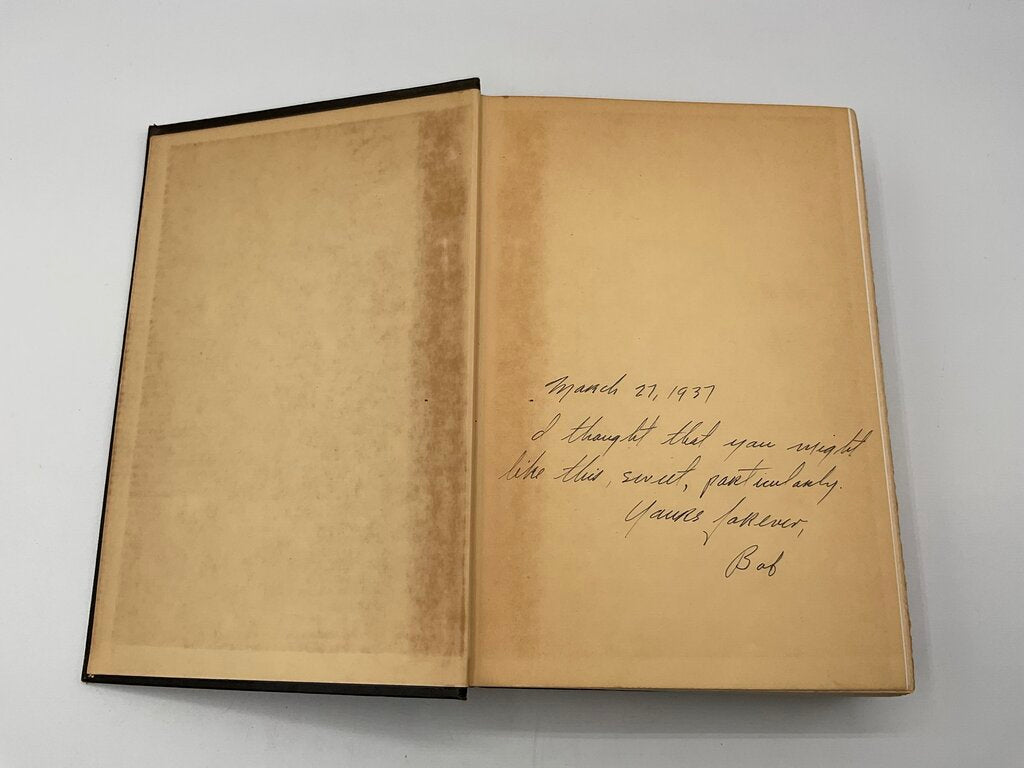 March 27, 1937
I thought that you might
like this, sweet, particularly.
Yours forever,
Bob